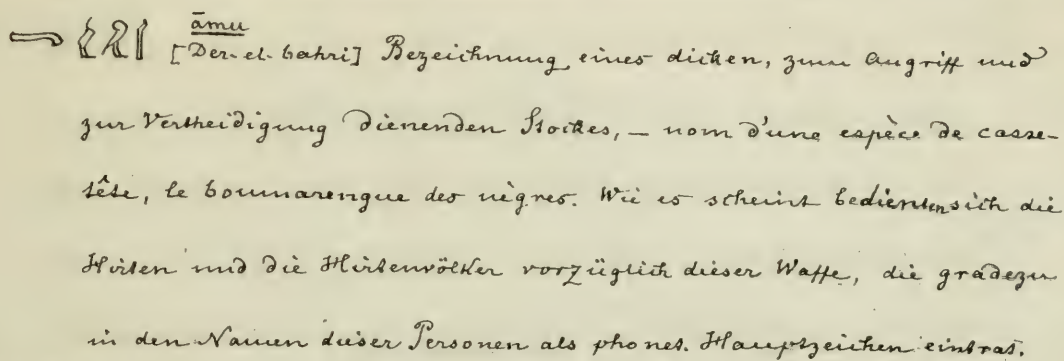 āmu
[Der-el-bahri] Bezeichnung eines dicken, zum Angriff und
zur Vertheidigung dienenden Stockes, — nom d'une espèce de casse-
tête, le boumarengue des nègres. Wie es scheint bedienten sich die
Hirten und die Hirtenvölker vorzüglich dieser Waffe, die gradezu
in den Namen dieser Personen als phonet. Hauptzeichen eintrat.